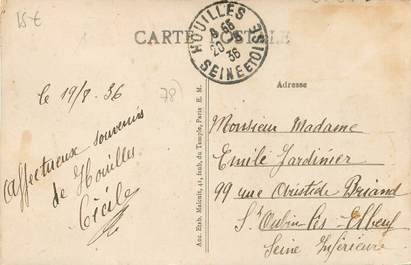 15 €
CARTE POSTALE
HOUILLES
20 - 8
36
SEINE ET OISE
Adresse
le 19/8. 36
78)
Affectueux souvenirs
de Houilles
Cécile
Anc. Etab. Malcuit, 41, faub. du Temple, Paris E. M.
Monsieur Madame
Emile Jardinier
99 rue Aristide Briand
St Aubin lès Elbeuf
Seine Inférieure